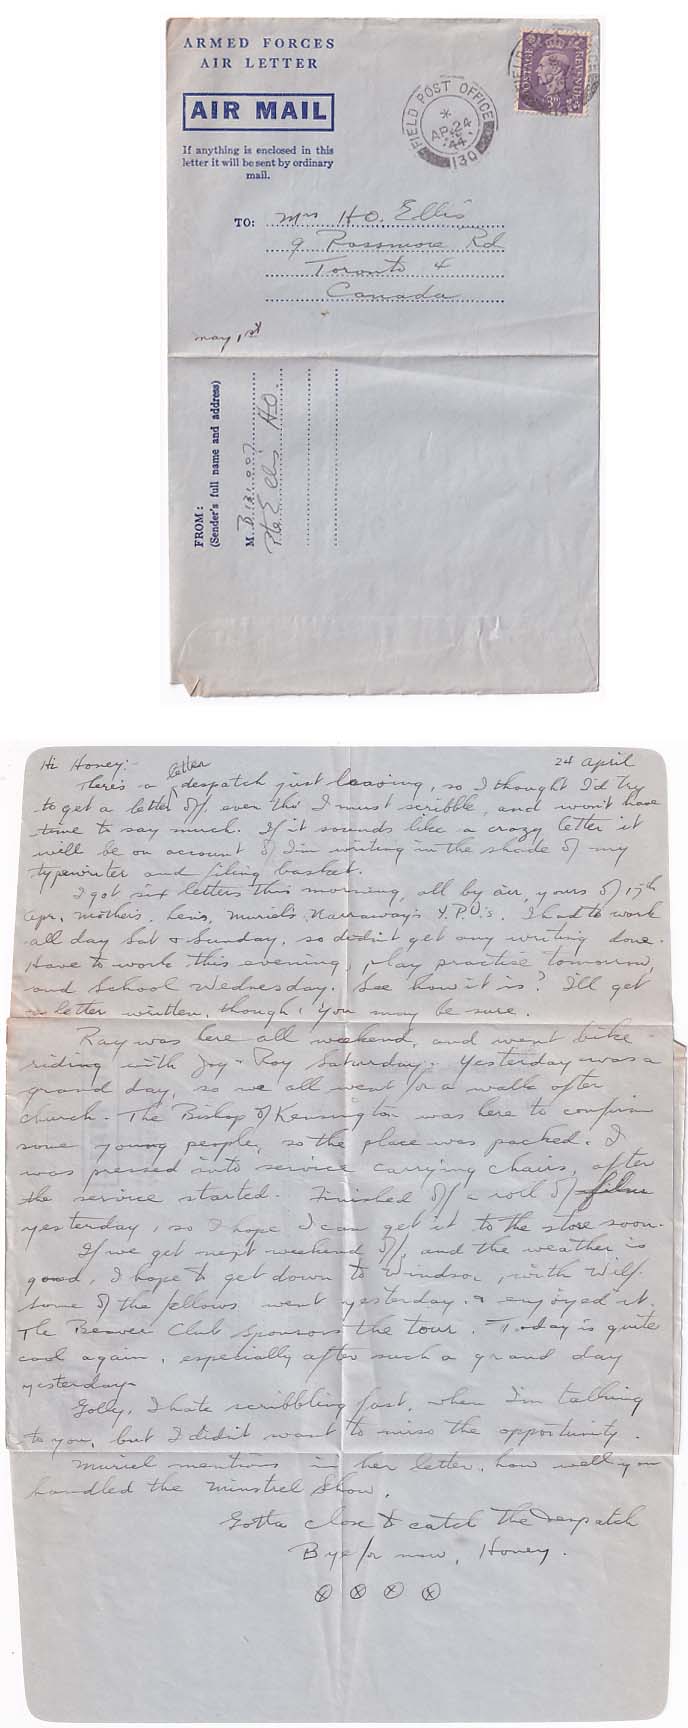 ARMED FORCES
AIR LETTER
AIR MAIL
If anything is enclosed in this
letter it will be sent by ordinary
mail.
FIELD POST OFFICE
AP 24
44
130
POSTAGE REVENUE
TO: Mrs H.O. Ellis
9 Rossmore Rd
Toronto 4
Canada
May 1st
FROM:
(Sender's full name and address)
Pte Ellis H.O.
Hi Honey:- 24 April
There's a letter despatch just leaving, so I thought I'd try
to get a letter off, even tho' I must scribble, and won't have
time to say much. If it sounds like a crazy letter it
will be on account of I'm writing in the shade of my
typewriter and filing basket.
I got six letters this morning, all by air, yours of 15th
Apr, mother's, Muriel's, Narraway's Y.P.U's. I had to work
all day Sat & Sunday, so didn't get any writing done.
Have to work this evening, play practise tomorrow,
and School Wednesday. See how it is? I'll get
a letter written, though, you may be sure.
Ray was here all weekend, and went bike
riding with Joy & Roy Saturday. Yesterday was a
grand day, so we all went for a walk after
church. The Bishop of Kensington was here to confirm
some young people, so the place was packed. I
was pressed into service carrying chairs, after
the service started. Finished off a roll of film
yesterday, so I hope I can get it to the store soon.
If we get next weekend off, and the weather is
good, I hope to get down to Windsor, with Wilf.
Some of the fellows went yesterday & enjoyed it.
The Beaver Club sponsors the tour. Today is quite
cool again, especially after such a grand day
yesterday.
Golly, I hate scribbling fast, when I'm talking
to you, but I didn't want to miss the opportunity.
Muriel mentions in her letter, how well you
handled the Minstrel Show.
Gotta close to catch the despatch
Bye for now, Honey.